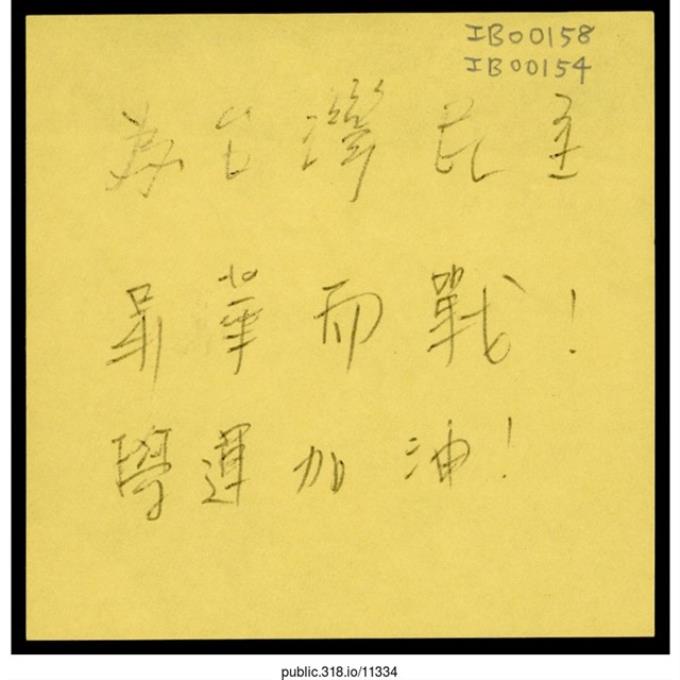 IB00158
IB00154
為台灣民主
昇華而戰！
學運加油！
public.318.io/11334